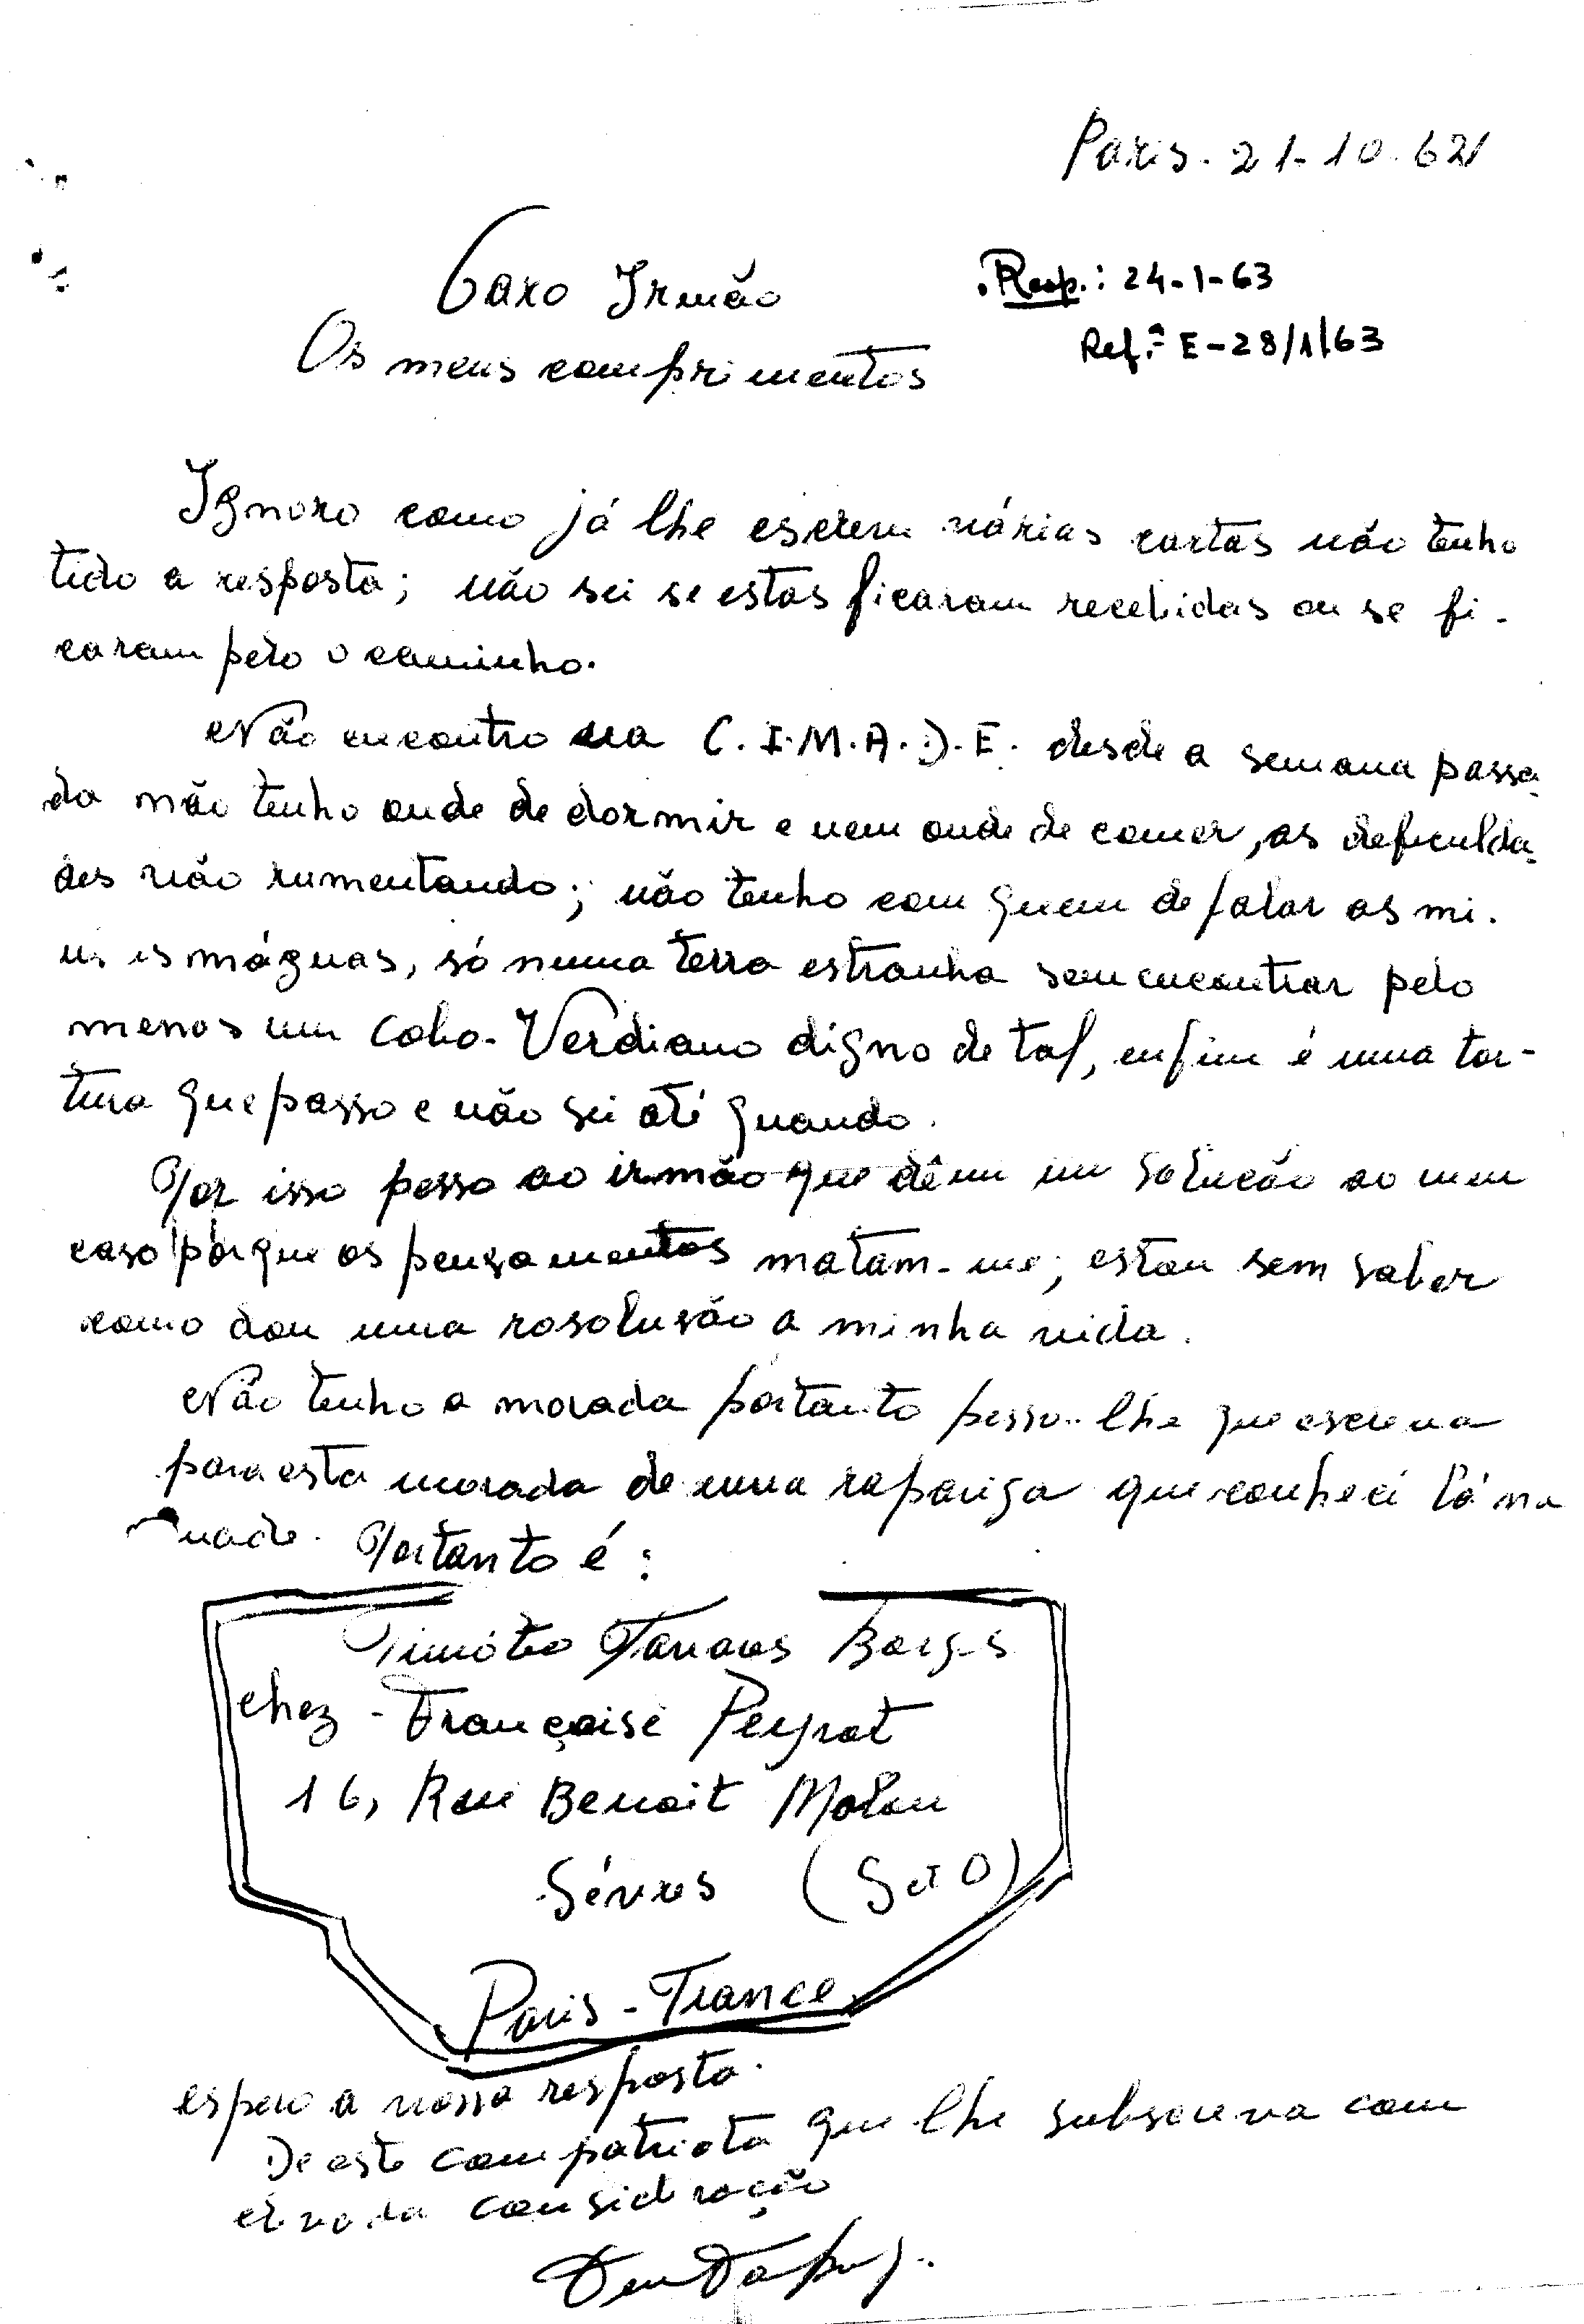 Paris. 21-10-62
Caro Irmão
Resp.: 24-1-63
Os meus comprimentos
Ref.ª E-28/1/63
Ignoro como já lhe escrevi várias cartas não tenho
tido a resposta; não sei se estas ficaram recebidas ou se fi-
caram pelo o caminho.
Não encontro na C.I.M.A.D.E. desde a semana passa-
da não tenho onde de dormir e nem onde de comer, as deficulda-
des vão rumentando; não tenho com quem de falar as mi-
nhas máguas, só numa terra estranha sem encontrar pelo
menos um Cabo-Verdiano digno de tal, enfim é uma tor-
tura que passo e não sei até quando.
Por isso passo ao irmão que dêm um solucão ao meu
caso porque os pensamentos matam-me; estou sem saber
como dou uma rosolusão a minha vida.
Não tenho a morada portanto pesso-lhe que escreva
para esta morada de uma rapariga que conheci lá na
Portanto é:
Timóteo Tavares Borges
chez - Françoise Peyrat
16, Rue Benoit Malon
Sévres (S et O)
Paris - France
espero a vossa resposta.
De este compatriota que lhe subscreva com
elvada consideração